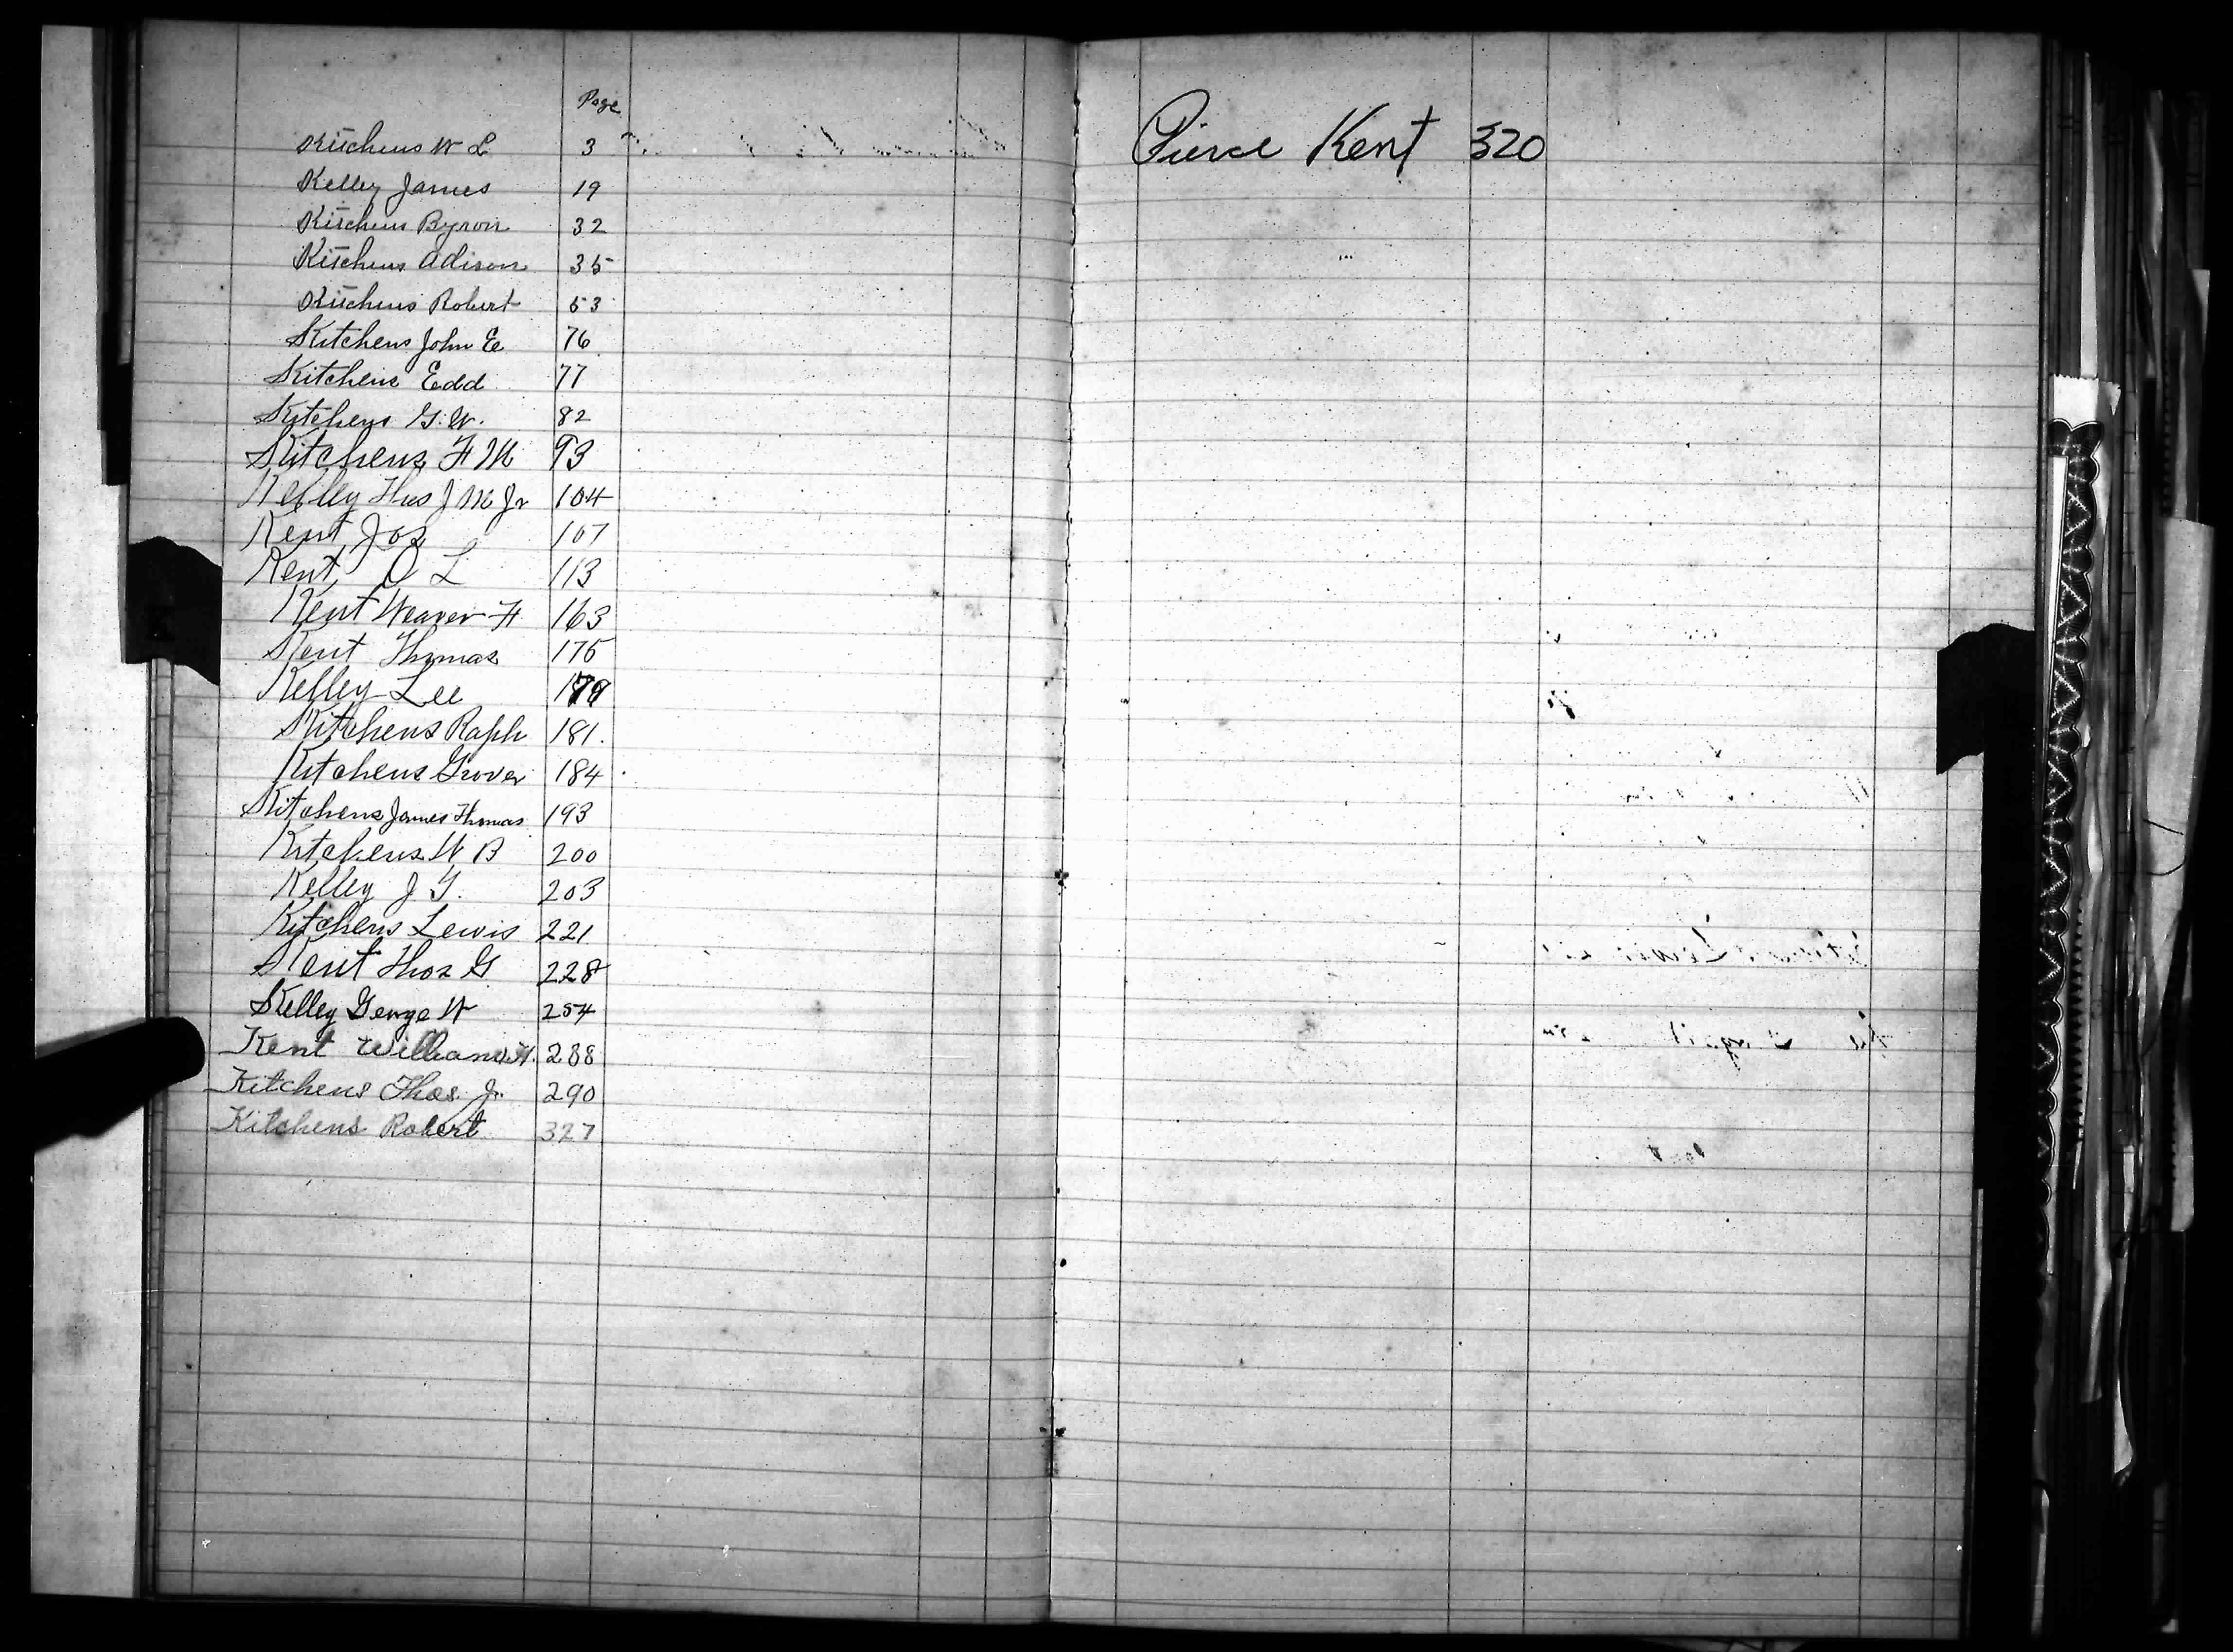 Page
Kitchens W L 3
Kelley James 19
Kitchens Byron 32
Kitchens Adison 35
Kitchens Robert 53
Kitchens John E 76
Kitchens Edd 77
Kitchens G. W. 82
Kitchens F M 93
Kelley Thos J M Jr 104
Kent Jos 107
Kent O L 113
Kent Weaver H 163
Kent Thomas 175
Kelley Lee 179
Kitchens Raph 181.
Kitchens Grover 184
Kitchens James Thomas 193
Kitchens W B 200
Kelley J G. 203
Kitchens Lewis 221
Kent Thos G 228
Kelley George W 254
Kent William H. 288
Kitchens Thos. Jr. 290
Kitchens Robert 327
Pierce Kent 320